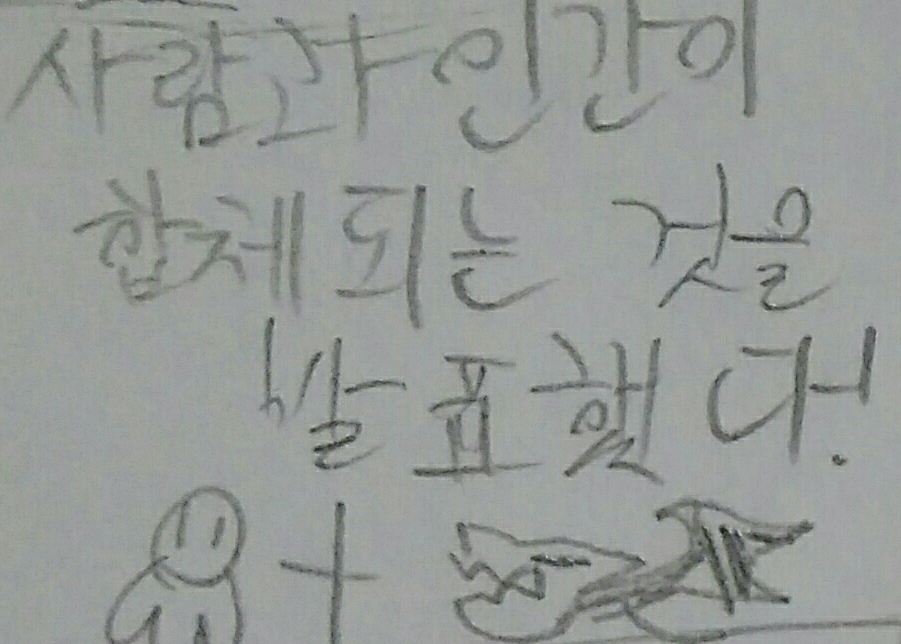 사람과 인간이
합체되는 것을
발표했다!
+